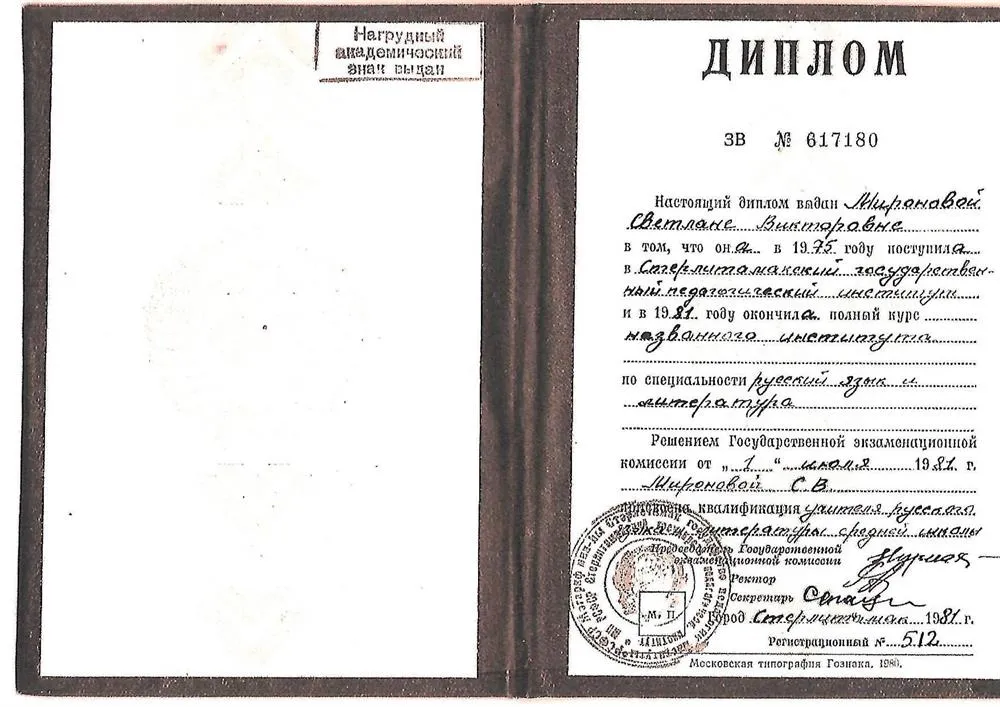 Нагрудный
академический
знак выдан
ДИПЛОМ
ЗВ № 617180
Настоящий диплом выдан Мироновой
Светлане Викторовне
в том, что она в 1975 году поступила
в Стерлитамакский государствен-
ный педагогический институт
и в 1981 году окончила полный курс
названного института
по специальности русский язык и
литература
Решением Государственной экзаменационной
комиссии от „1“ июля 1981 г.
Мироновой С.В.
присвоена квалификация учителя русского
языка литературы средней школы
Председатель Государственной
экзаменационной комиссии
Ректор
Секретарь
М. П.
Город Стерлитамак 1981 г.
Регистрационный № 512
Московская типография Гознака. 1980.